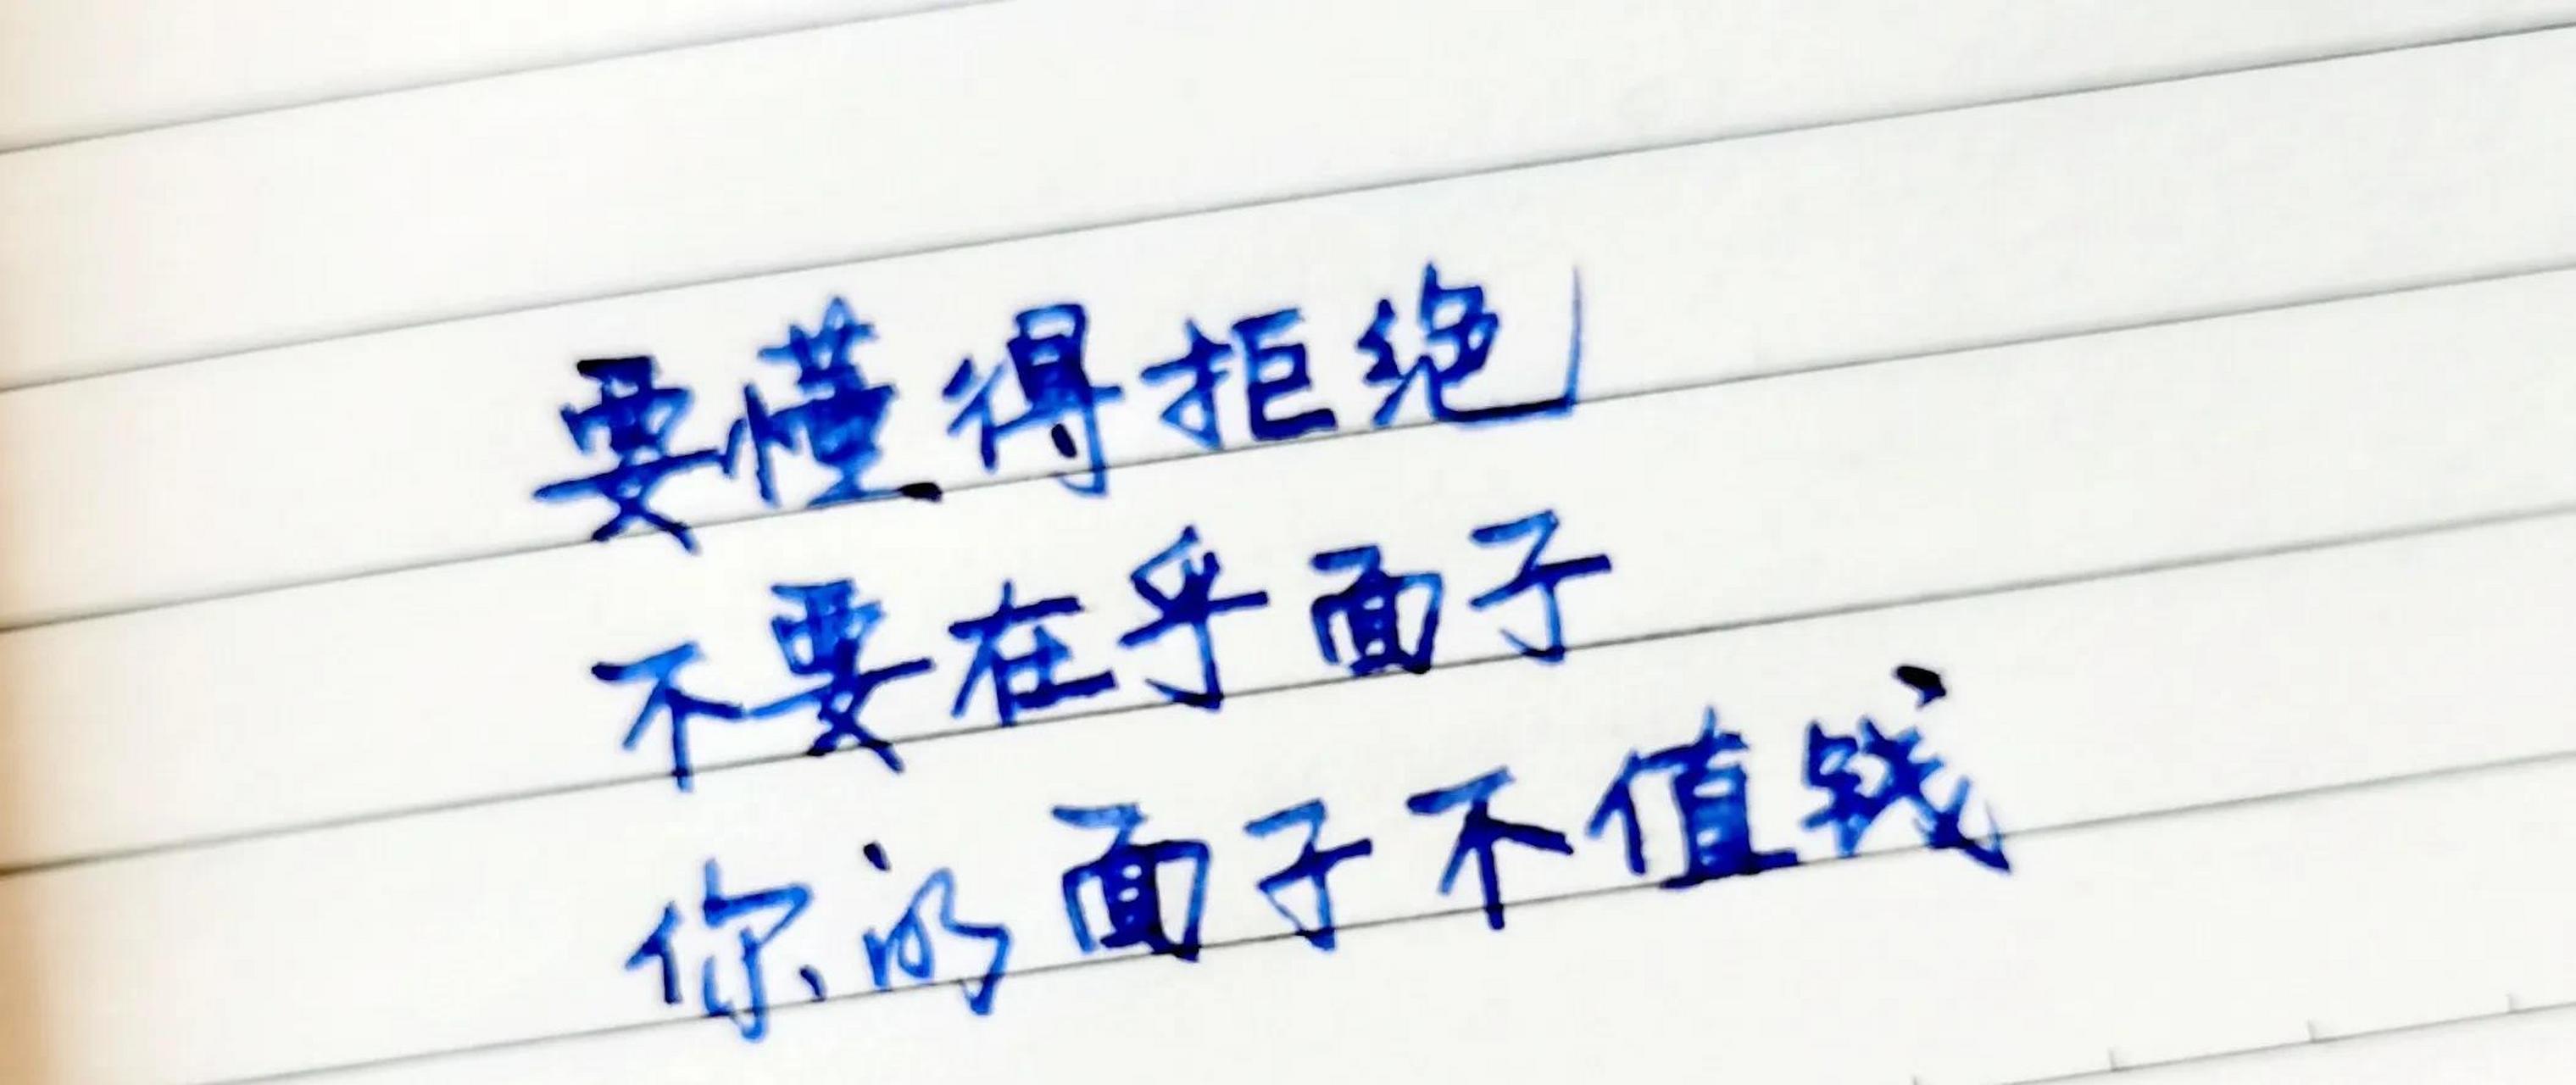 要懂得拒绝
不要在乎面子
你的面子不值钱